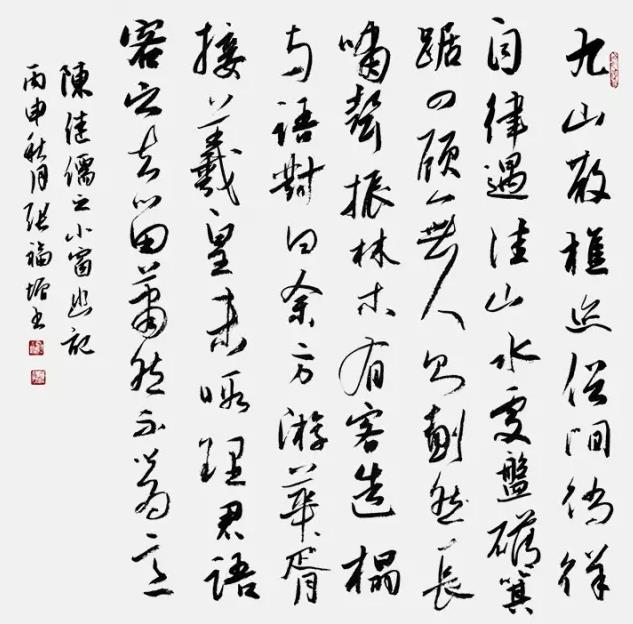 九山散樵迹俗間徜徉
自律遇佳山水處盤礴箕
踞四顧無人則劃然長
嘯聲振林木有客造榻
与語對曰余方游華胥
接羲皇未暇理君語
客之去留蕭然不以為意
陳継儒之小窗幽記
丙申秋月張福增書